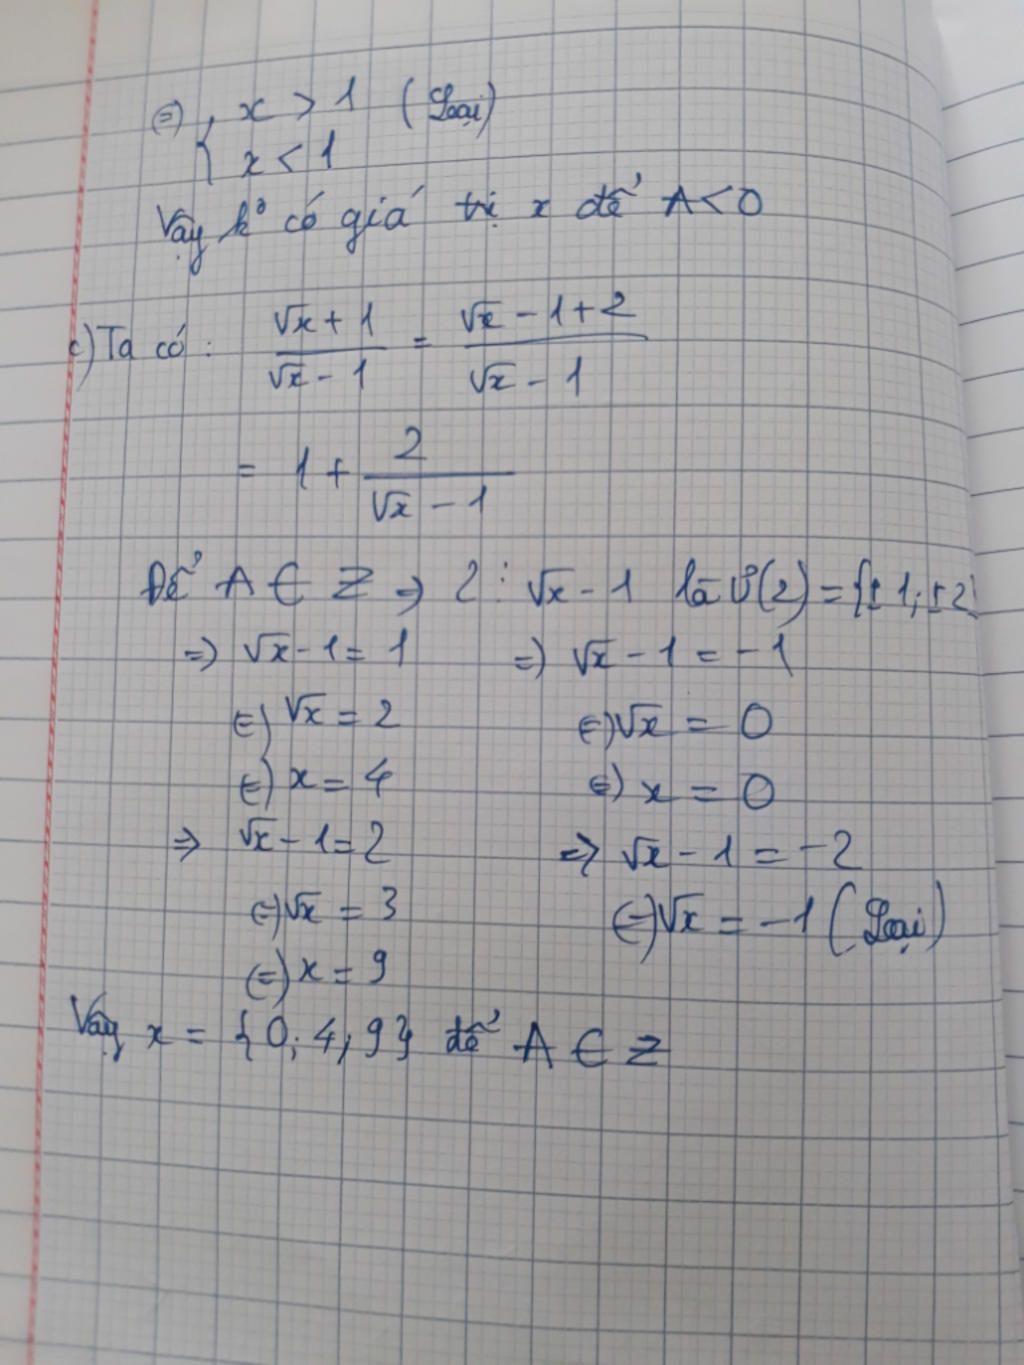 (=) { x > 1 (Loại)
x < 1
Vậy k° có giá trị x để A < 0
c) Ta có : (√x + 1)/(√x - 1) = (√x - 1 + 2)/(√x - 1)
= 1 + 2/(√x - 1)
Để A ∈ Z => 2 ⋮ √x - 1 là Ư(2) = {± 1; ± 2}
=> √x - 1 = 1 => √x - 1 = -1
(=) √x = 2 (=) √x = 0
(=) x = 4 (=) x = 0
=> √x - 1 = 2 => √x - 1 = -2
(=) √x = 3 (=) √x = -1 (Loại)
(=) x = 9
Vậy x = {0; 4; 9} để A ∈ Z